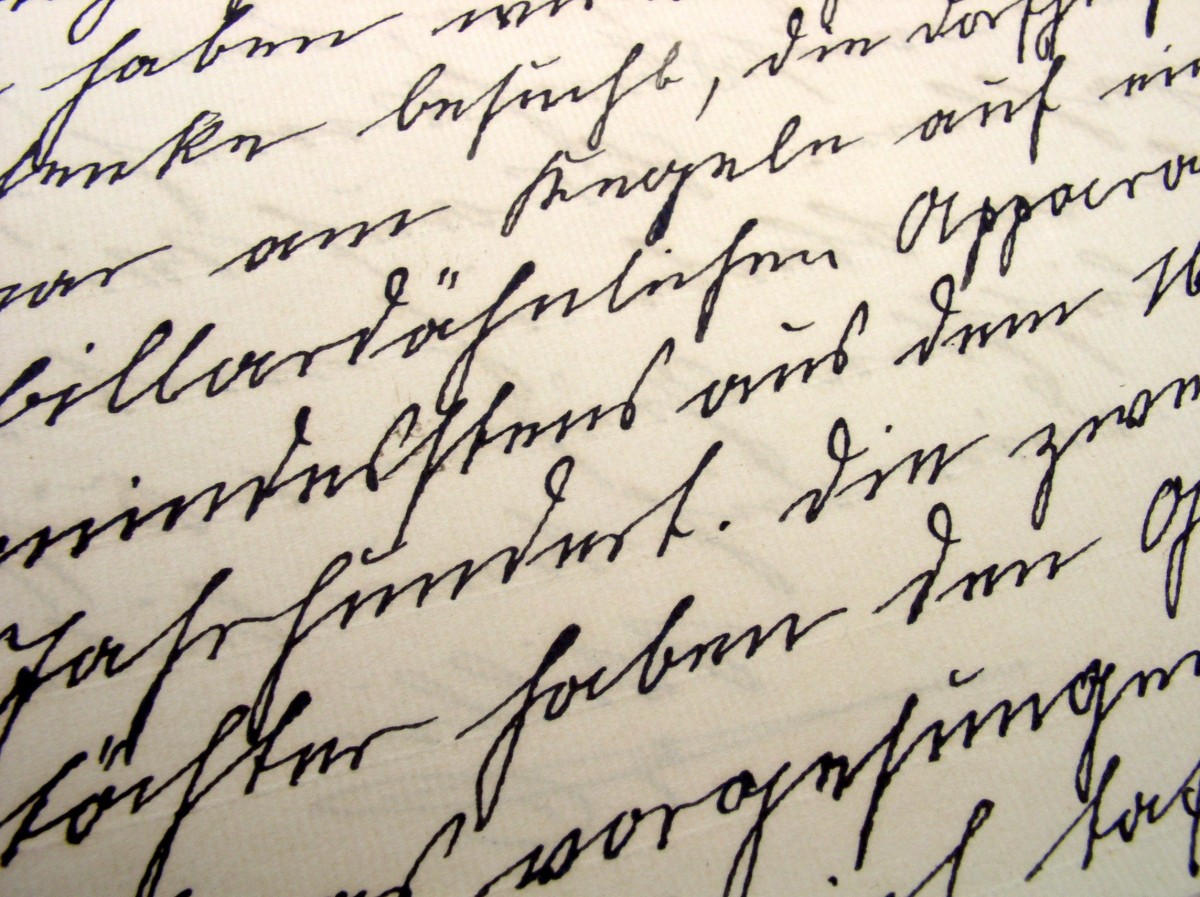 haben
besucht, die
war am Kegeln auf
billardähnlichen Appara
mindestens aus dem 16
Jahrhundert. die zwe
töchter haben den
vorgesungen